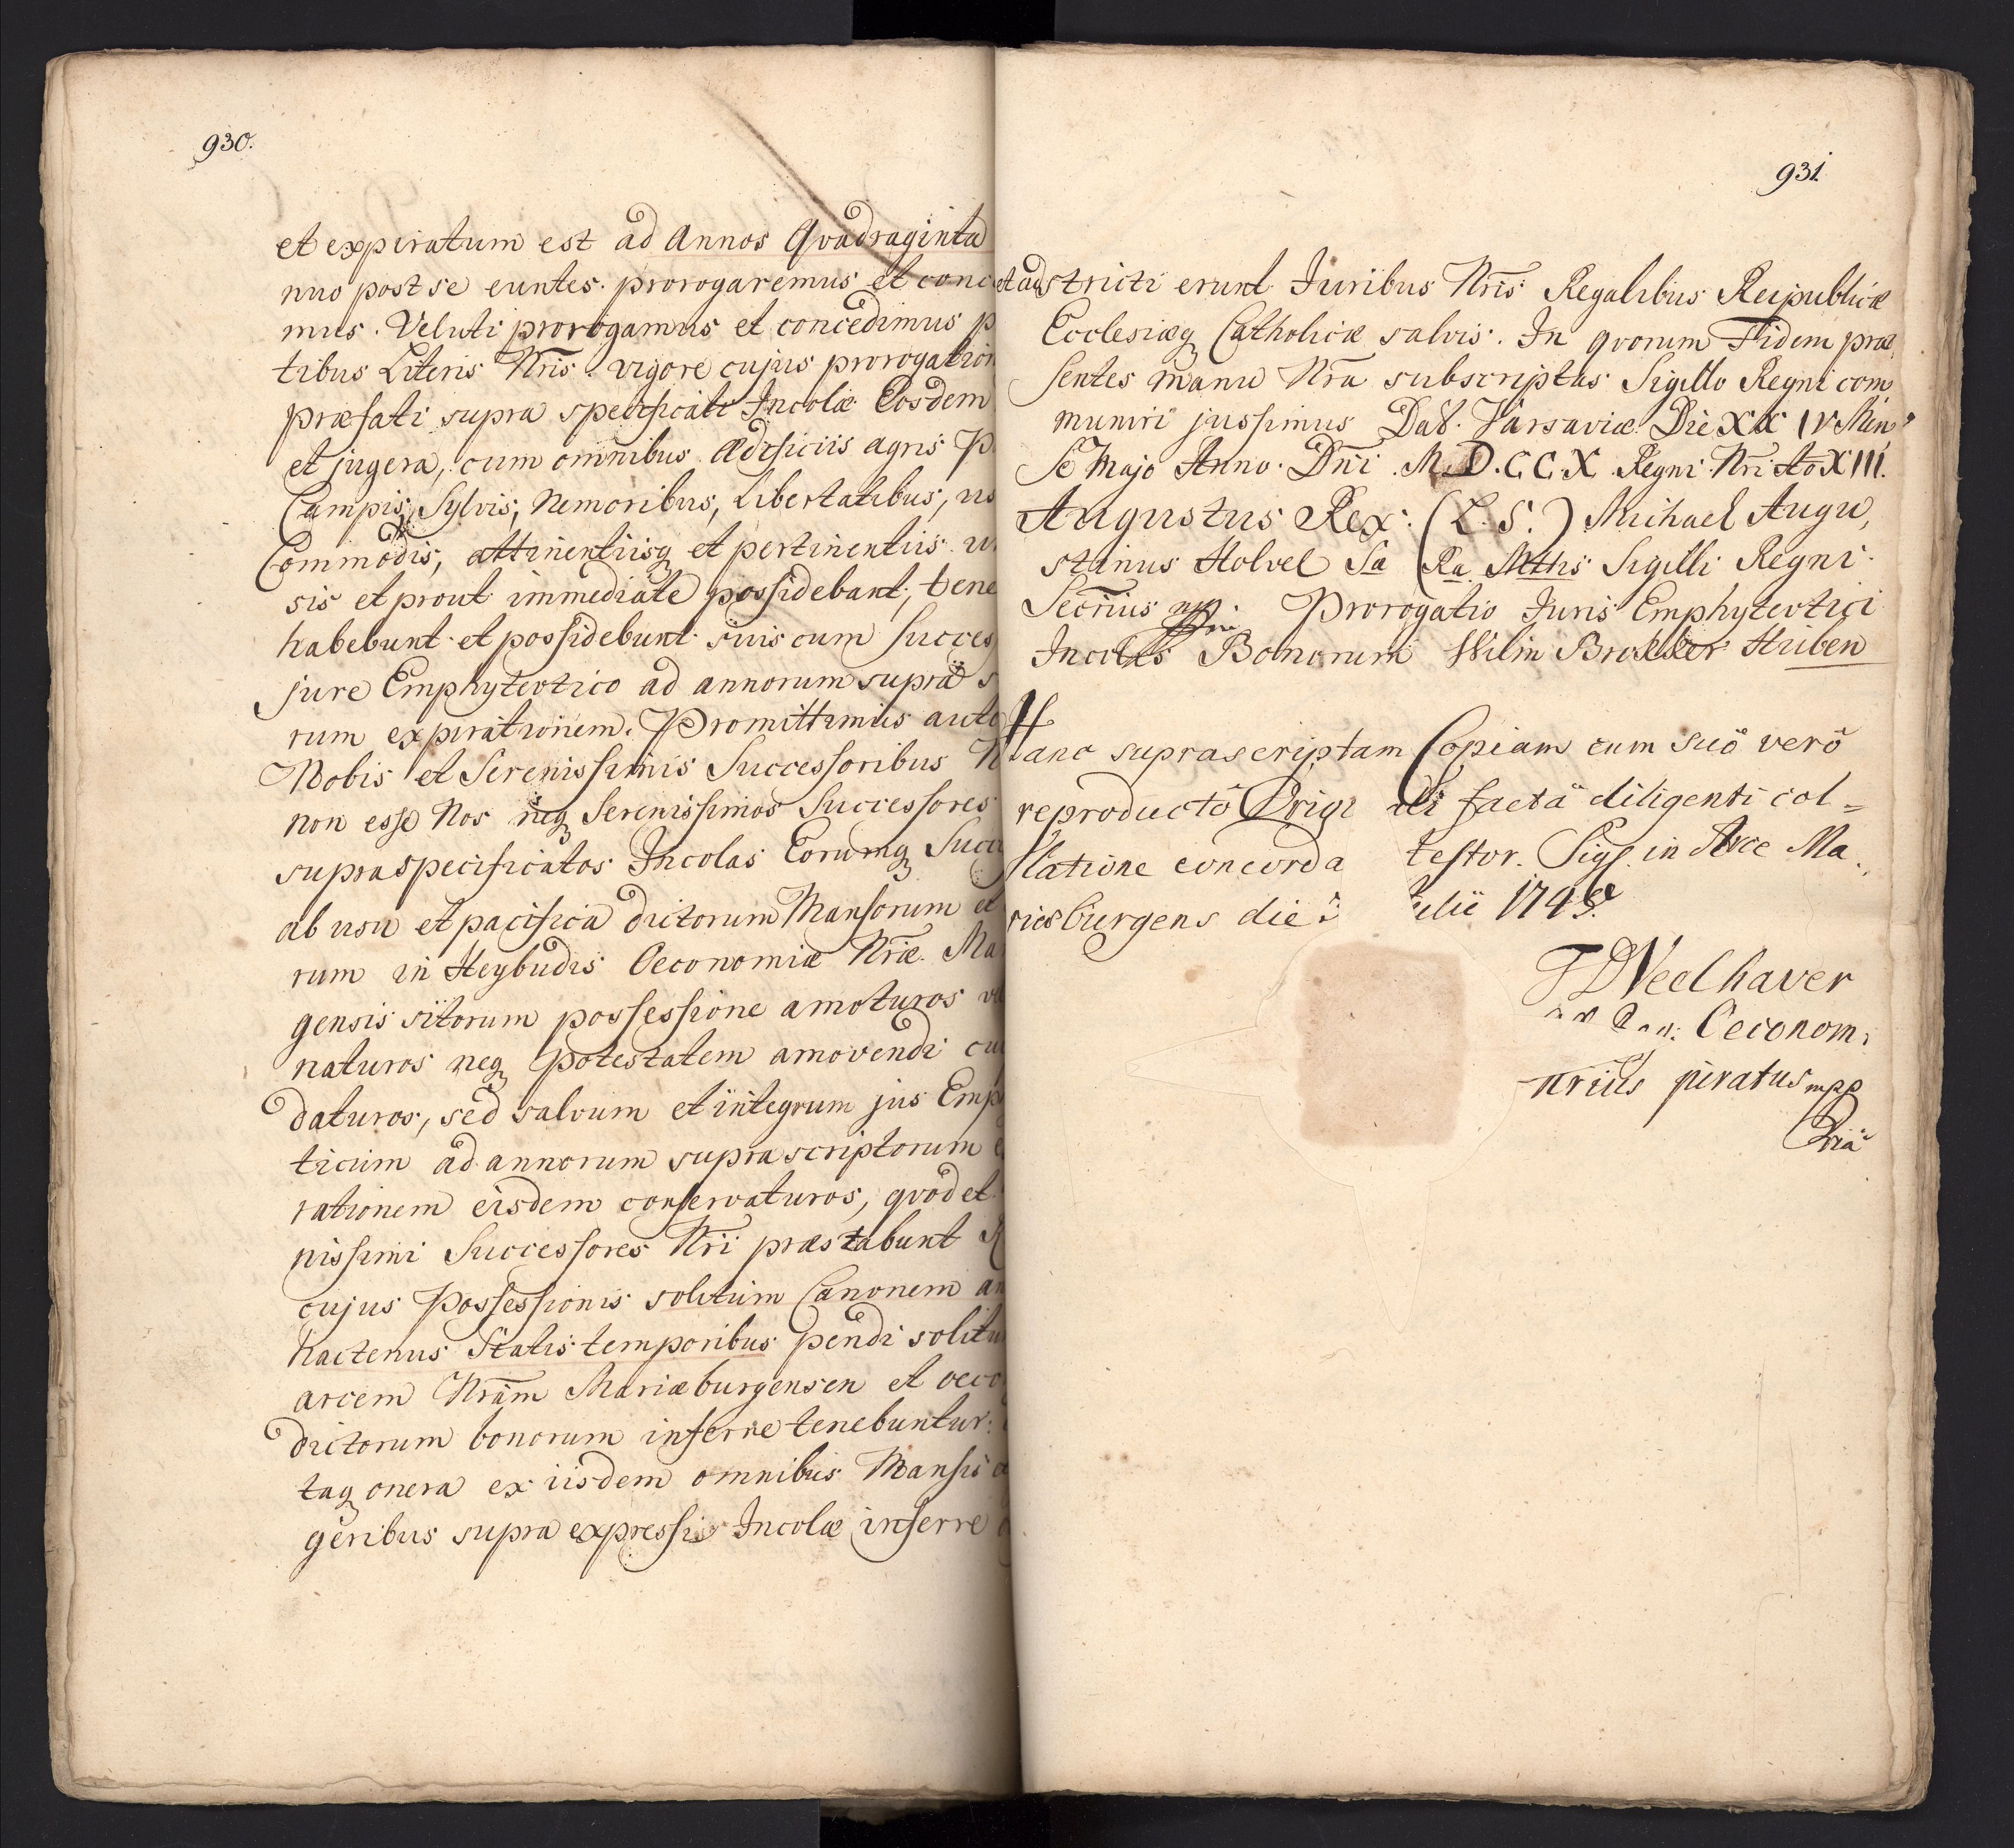 930.
et expiratum est ad Annos Qvadraginta
nuo post se euntes prorogaremus et conc
mus. Veluti prorogamus et concedimus p
tibus Literis Nr̃is. vigore cujus prorogation
præfati supra specificati Incolæ Eosdem
et jugera, cum omnibus Ædificiis agris P
Campis, Sylvis, Nemoribus, Libertatibus, us
Commodis, attinentiisq et pertinentiis u
sis et prout immediate possidebant, tene
habebunt et possidebunt suis cum Succes
jure Emphytevtico ad annorum supra s
rum expirationem. Promittimus aute
Nobis et Serenissimis Successoribus N
non esse Nos neq Serenissimos Successores
supraspecificatos Incolas Eorumq Succ
ab usu et pacifica dictorum Mansorum et
rum in Heybudis Oeconomiæ Nr̃æ Ma
gensis sitorum possessione amoturos
naturos neq potestatem amovendi cu
daturos, sed salvum et integrum jus Emp
ticum ad annorum suprascriptorum
rationem eisdem conservaturos, qvod et
nissimi Successores Nr̃i præstabunt
cujus Possessionis solitum Canonem an
hactenus Statis temporibus pendi solitu
arcem Nr̃am Mariæburgensen et oeco
dictorum bonorum inferre tenebuntur
taq onera ex iisdem omnibus Mansis
geribus supra expressis Incolæ inferre
931.
et adstricti erunt Juribus Nr̃is Regalibus Reipublicæ
Ecclesiæq Catholicæ salvis. In qvorum Fidem præ
sentes manu Nr̃a subscriptas Sigillo Regni com
muniri jussimus Dat. Varsaviæ Die XXIV Men
se Majo Anno Dn̄i M.D.CCX Regni Nr̃i Ao XIII.
Augustus Rex. (L.S.) Michael Augu,
stinus Holvel Sæ Ræ Mttis Sigilli Regni
Secr̃ius mp. Prorogatio Juris Emphytevtici
Incolis Bonorum Wilm Brokker Huben
Hanc suprascriptam Copiam cum suô verô
reproductô Origi ali factâ diligenti col=
latione concorda testor. Sigl. in Arce Ma
riæburgens die ulii 174
F D Neelhaver
Oeconom:
nrius juratus mpp
pria